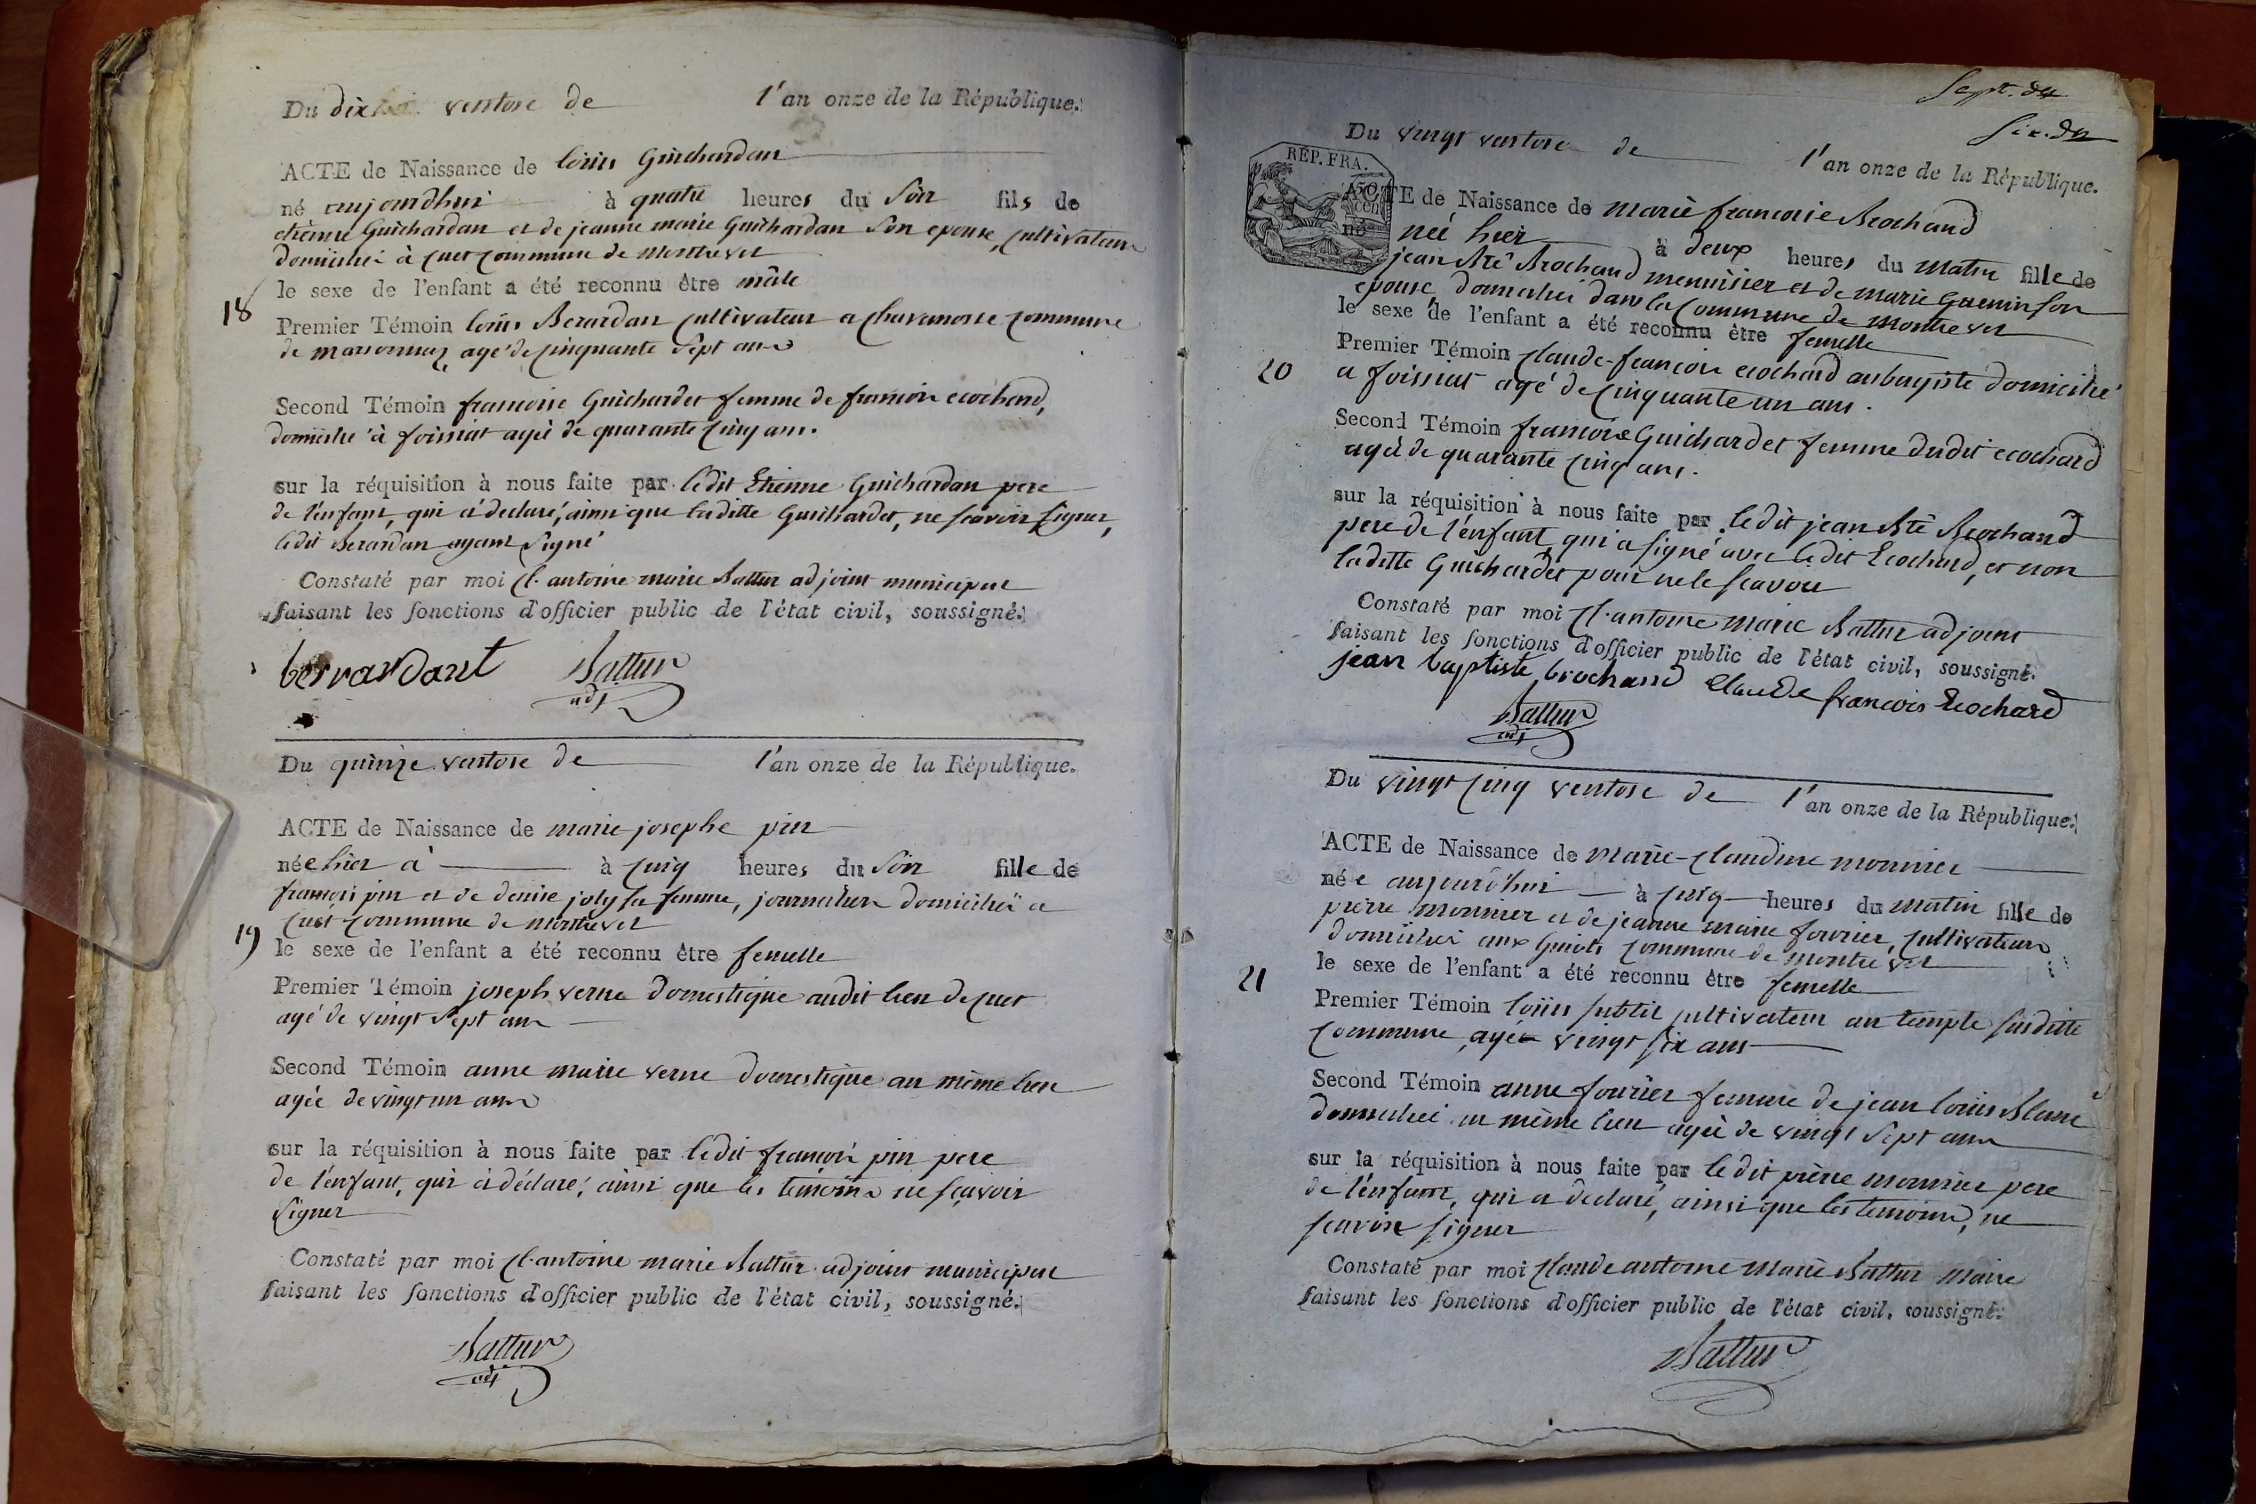 Du dix ventose de l'an onze de la République.
ACTE de Naissance de loüis Guichardan
né aujourdhui à quatre heures du Soir fils de
etienne Guichardan et de jeanne marie Guichardan Son epouse, cultivateurs
domicilié à cuet commune de Montrevel
le sexe de l'enfant a été reconnu être mâle
18
Premier Témoin loüis Berardan cultivateur a Chavanosse commune
de marsonnaz, agé de cinquante Sept ans
Second Témoin francoise Guichardet femme de francoin ecochard,
domiciliée à foissiat agée de quarante cinq ans.
sur la réquisition à nous faite par ledit Etienne Guichardan pere
de l'enfant, qui a declaré, ainsi que laditte Guichardet, ne scavoir signer,
ledit Berardan ayant Signé
Constaté par moi Cl. antoine marie Battur adjoint municipal
faisant les fonctions d'officier public de l'état civil, soussigné.
berrardant Battur
adj
Du quinze ventose de l'an onze de la République.
ACTE de Naissance de marie josephe pin
née hier à à cinq heures du Soir fille de
françois pin et de denise joly sa femme, journaliers domiciliés a
Cuet commune de Montrevel
19
le sexe de l'enfant a été reconnu être femelle
Premier Témoin joseph verne domestique audit lieu de cuet
agé de vingt Sept ans
Second Témoin anne marie verne domestique au même lieu
agée de vingt un ans
sur la réquisition à nous faite par ledit françois pin pere
de l'enfant, qui a déclaré, ainsi que les témoins ne sçavoir
Signer
Constaté par moi Cl. antoine marie Battur adjoint municipal
faisant les fonctions d'officier public de l'état civil, soussigné.
Battur
adj
Sept. de
Six. de
Du vingt ventose de l'an onze de la République.
REP. FRA.
50
cen
ACTE de Naissance de marie francoise Brochand
né née hier à deux heures du matin fille de
jean Bte Brochand menuisier et de marie Guenin son
epouse, domiciliés dans la Commune de Montrevel
le sexe de l'enfant a été reconnu être femelle
20
Premier Témoin claude-françois ecochard aubergiste domicilié
a foissiat agé de cinquante un ans.
Second Témoin francoise Guichardet femme dudit ecochard
agée de quarante cinq ans.
sur la réquisition à nous faite par ledit jean Bte Brochand
pere de l'enfant qui a signé avec ledit Ecochard, et non
laditte Guichardet pour ne le scavoir
Constaté par moi Cl. antoine Marie Battur adjoint
faisant les fonctions d'officier public de l'état civil, soussigné.
jean baptiste brochand Claude françois Ecochard
Battur
adj
Du vingt cinq ventose de l'an onze de la République.
ACTE de Naissance de Marie-claudine monnier
née aujourd'hui à cinq heures du matin fille de
pierre monnier et de jeanne marie fourier, cultivateurs
domiciliés aux Guiots commune de Montrevel
le sexe de l'enfant a été reconnu être femelle
21
Premier Témoin loüis subtil cultivateur au temple susditte
commune, agé vingt six ans
Second Témoin anne fourier femme de jean loüis Blanc
domiciliée au même lieu agée de vingt Sept ans
sur la réquisition à nous faite par le dit pierre monnier pere
de l'enfant, qui a declaré, ainsi que les temoins, ne
scavoir signer
Constaté par moi claude antoine Marie Battur Maire
faisant les fonctions d'officier public de l'état civil, soussigné.
Battur